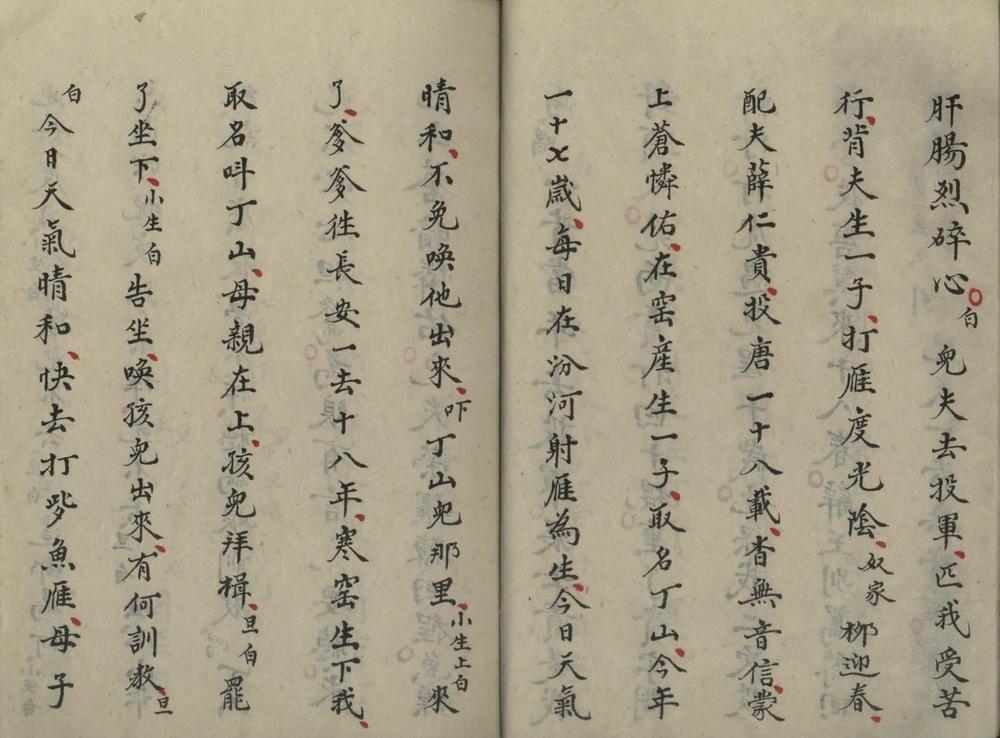 肝腸烈碎心白 兒夫去投軍匹我受苦
行背夫生一子打雁度光陰奴家柳迎春
配夫薛仁貴投唐一十八載杳無音信蒙
上蒼憐佑在窑産生一子取名丁山今年
一十〤歲每日在汾河射雁為生今日天氣
晴和不免喚他出來吓丁山兒那里小生上白來
了爹爹徃長安一去十八年寒窑生下我
取名呌丁山母親在上孩兒拜揖旦白罷
了坐下小生白告坐喚孩兒出來有何訓教旦
白今日天氣晴和快去打些魚雁母子